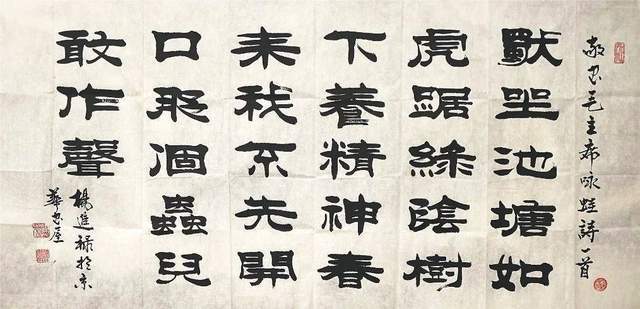 敬书毛主席咏蛙詩一首
獸坐池塘如
虎踞綠陰樹
下養精神春
来我不先開
口那個蟲兒
敢作聲
楊進祿於京
華